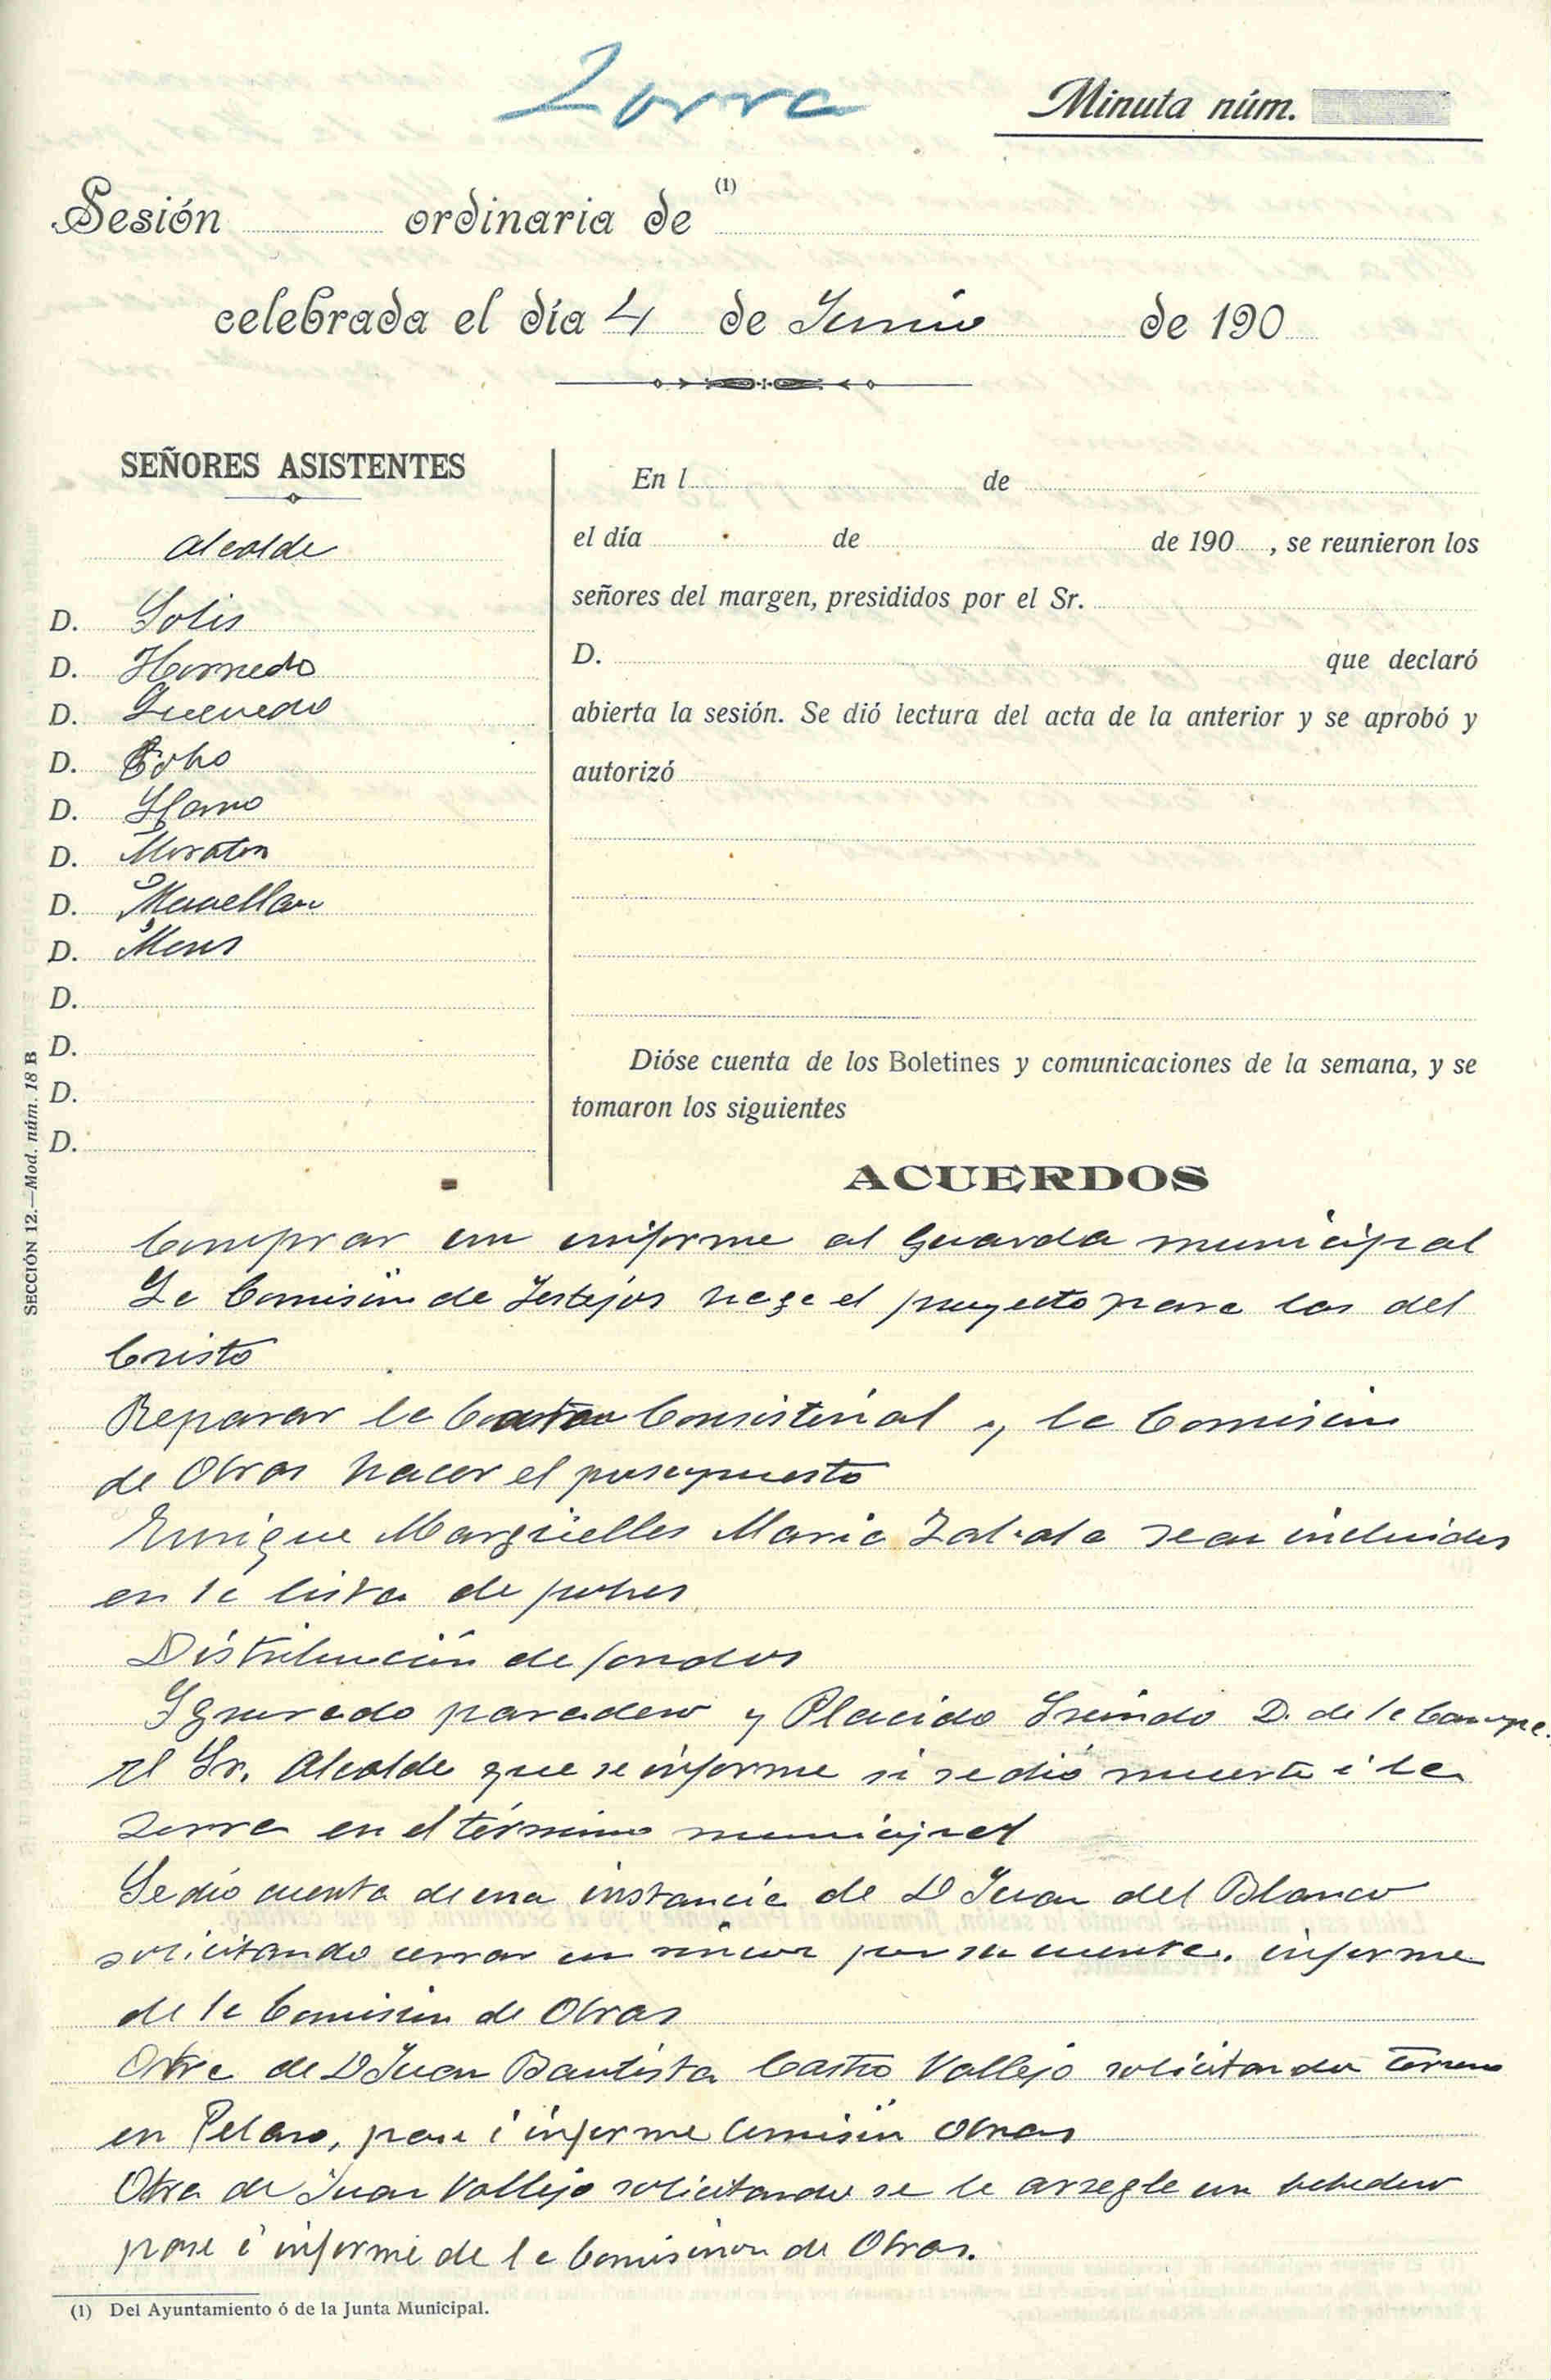 Zorra
Minuta núm.
Sesión ordinaria de (1)
celebrada el día 4 de Junio de 190
SEÑORES ASISTENTES
Alcalde
D. Solis
D. Hornedo
D. Quevedo
D. Cobo
D. Llamo
D. Moraton
D.
D. Mons
D.
D.
D.
D.
En l de
el día de de 190 , se reunieron los
señores del margen, presididos por el Sr.
D. que declaró
abierta la sesión. Se dió lectura del acta de la anterior y se aprobó y
autorizó
Dióse cuenta de los Boletines y comunicaciones de la semana, y se
tomaron los siguientes
ACUERDOS
Comprar un uniforme al Guarda municipal
La Comision de Festejos haga el proyecto para los del
Cristo
Reparar la Casa Consistorial y la Comision
de Obras hacer el presupuesto
Enrique Margüelles Maria Zabala sean incluidos
en la lista de pobres
Distribución de fondos
Ignorado paradero y Placido D. de la Campa
El Sr. Alcalde que se informe si se dió muerte á la
zorra en el término municipal
Se dio cuenta de una instancia de D Juan del Blanco
solicitando cerrar un rincon por su cuenta. informe
de la Comision de Obras
Otra de D Juan Bautista Castro Vallejo solicitando terreno
en Pelaro, pase á informe Comisión Obras
Otra de Juan Vallejo solicitando se le arregle un bebedero
pase á informe de la Comision de Obras.
SECCIÓN 12.—Mod. núm. 18 B
(1) Del Ayuntamiento ó de la Junta Municipal.